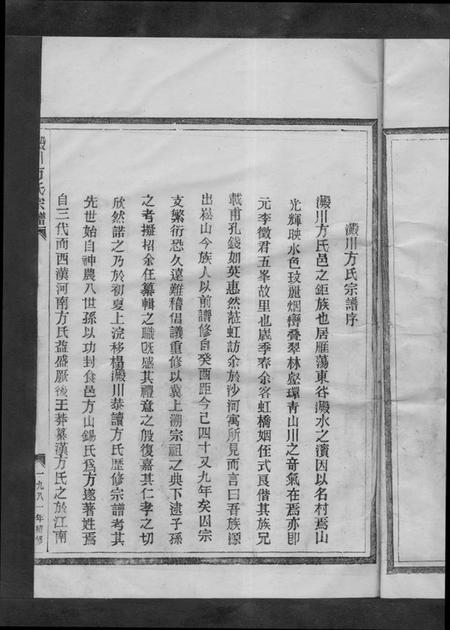 澱川方氏宗譜序
澱川方氏邑之鉅族也居雁蕩東谷澱水之濱因以名村焉山
光輝映水色玻麗烟巒叠翠林壑環青山川之奇氣在焉亦即
元李徵君五峯故里也歲季春余客虹橋姻侄式良偕其族兄
載甫孔錢如英惠然莅虹訪余於沙河寓所見而言曰吾族源
出崧山今族人以前譜修自癸酉距今已四十又九年矣因宗
支繁衍恐久遠難稽倡議重修以冀上溯宗祖之典下逮子孫
之考擬招余任纂輯之職既感其禮意之殷復嘉其仁孝之切
欣然諾之乃於初夏上浣移榻澱川恭讀方氏歷修宗譜考其
先世始自神農八世孫以功封食邑方山錫氏爲方遂著姓焉
自三代而西漢河南方氏益盛厥後王莽纂漢方氏之於江南
澱川方氏宗譜
一九八一年續修